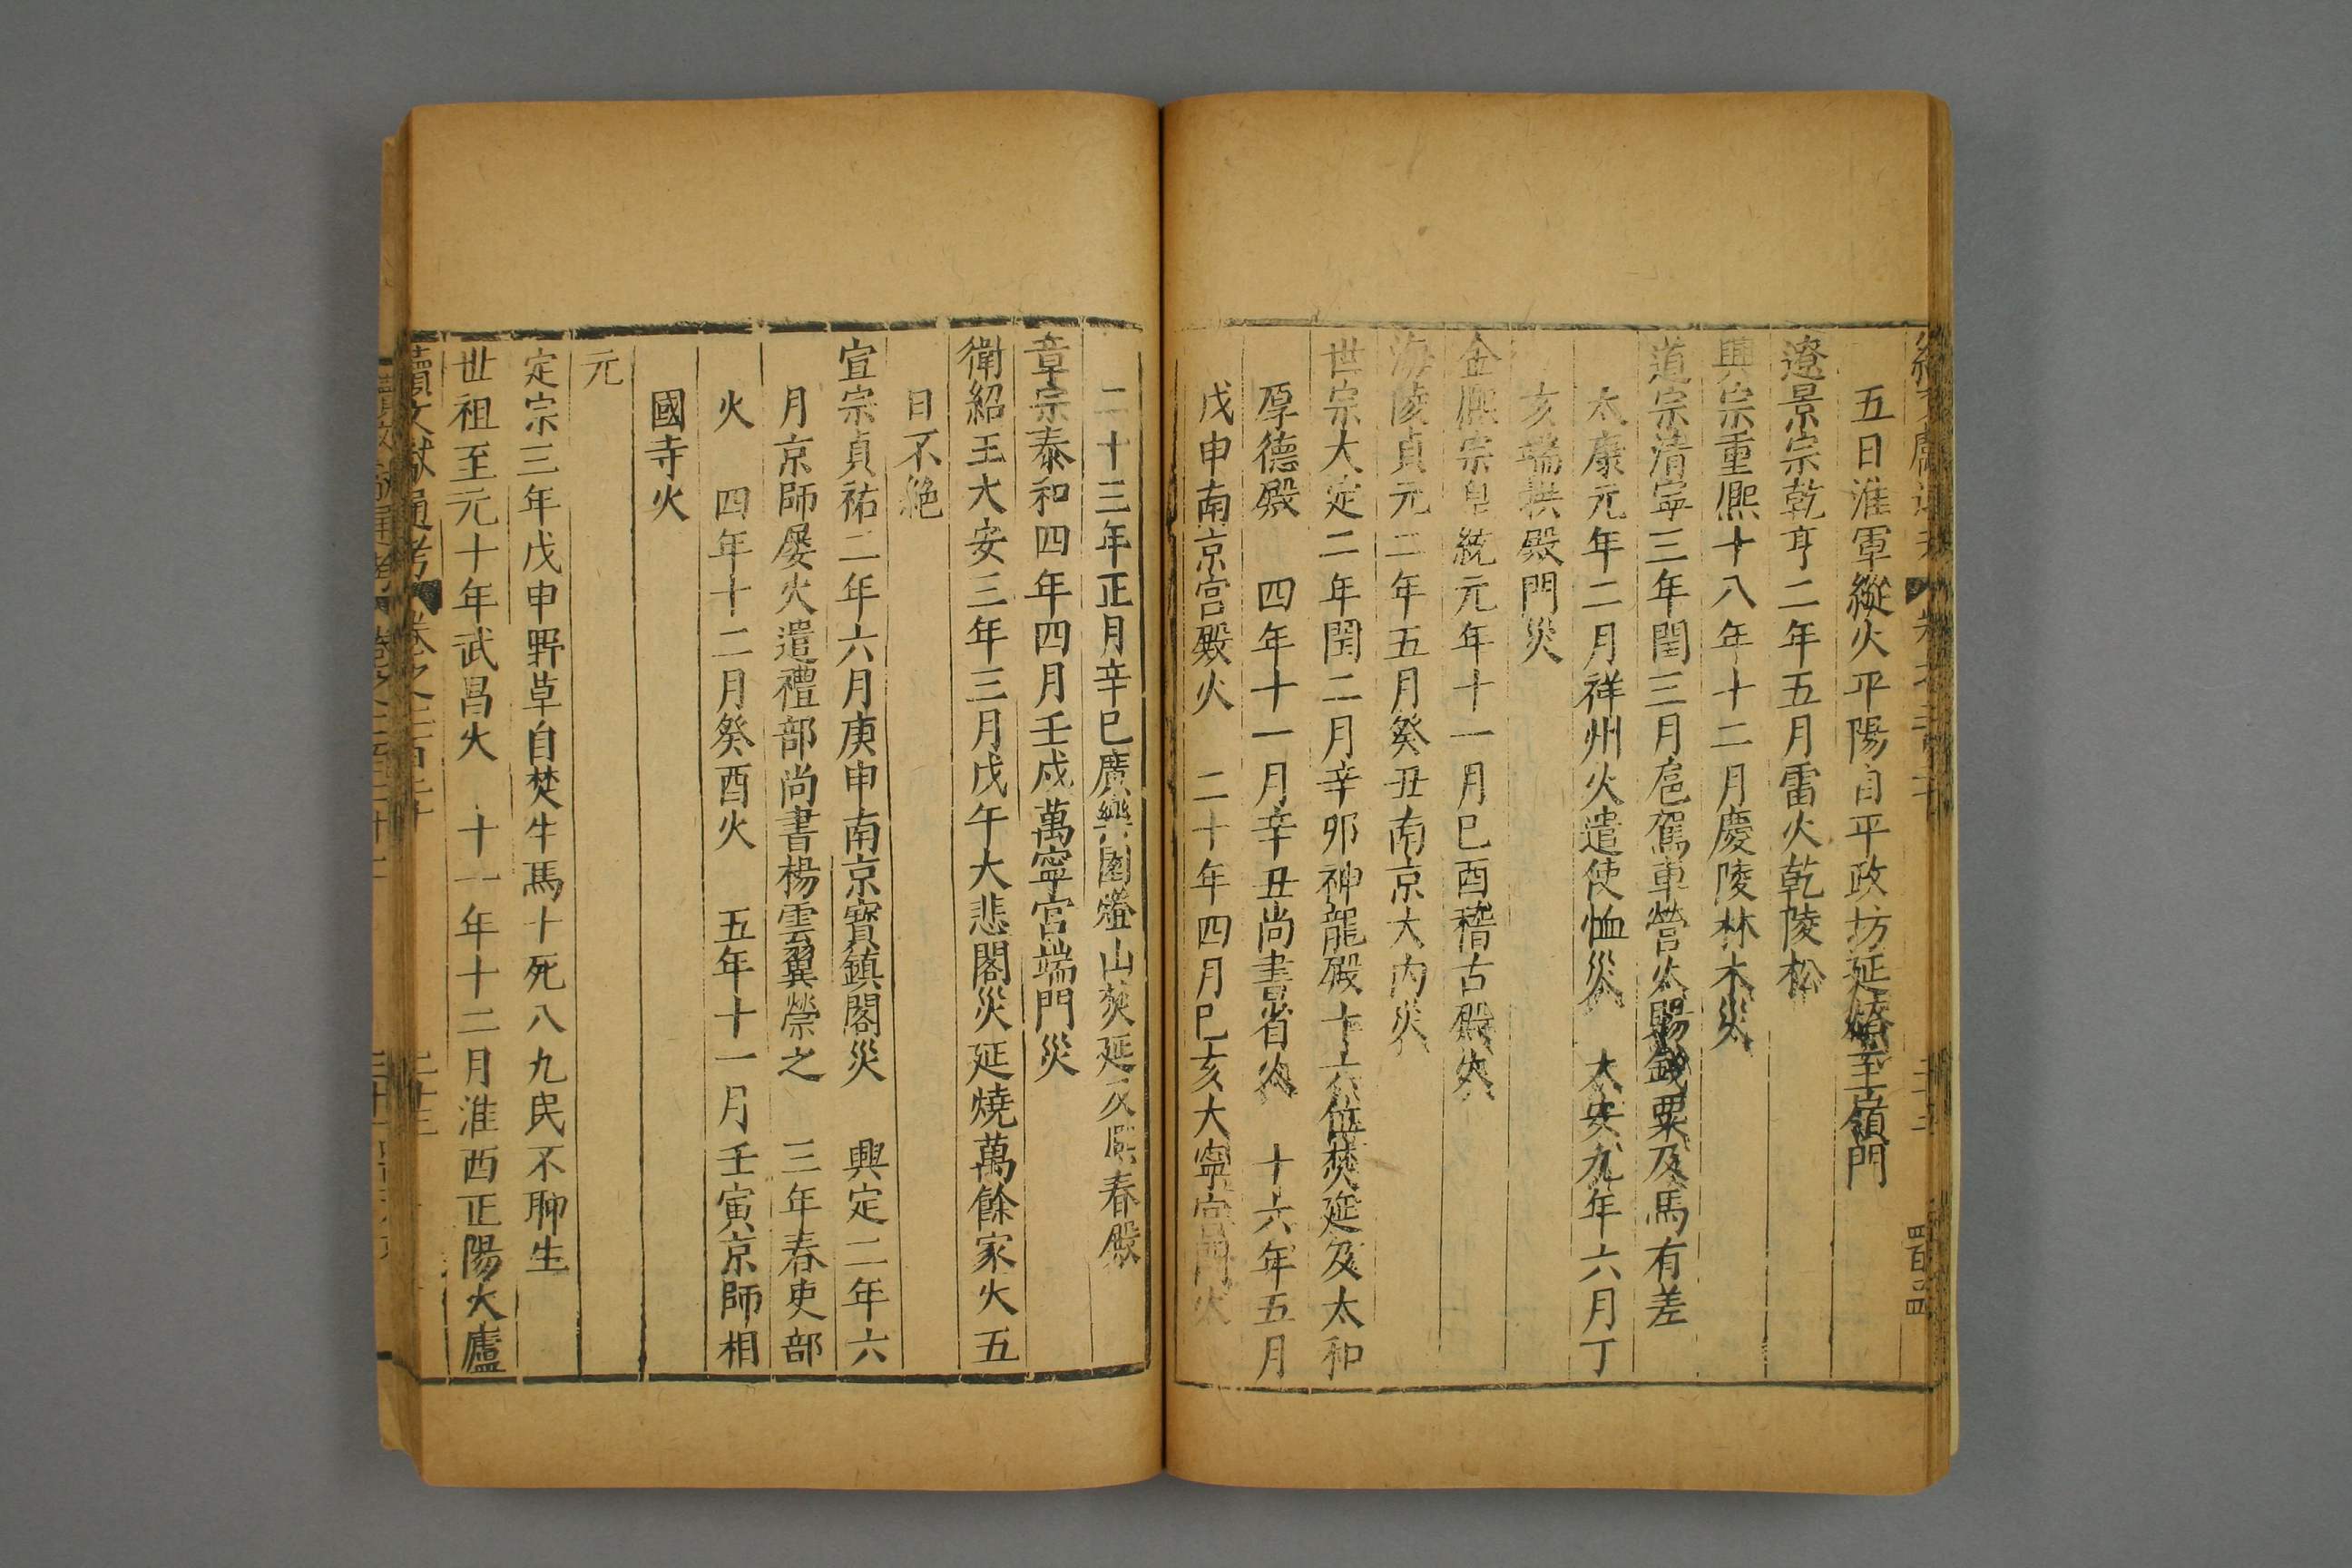 五日淮軍縱火平陽自平政坊延燎至嶺門
遼景宗乾亨二年五月雷火乾陵松
興宗重熙十八年十二月慶陵林木災
道宗清寧三年閏三月扈駕車營火賜錢粟及馬有差
太康元年二月祥州火遣使恤災　大安九年六月丁
亥端拱殿門災
金熙宗皇統元年十一月巳酉稽古殿火
海陵貞元二年五月癸丑南京大內災
世宗大定二年閏二月辛卯神龍殿十六位焚延及太和
厚德殿　四年十一月辛丑尚書省火　十六年五月
戊申南京宮殿火　二十年四月巳亥大寧宮門火
二十三年正月辛巳廣樂園燈山焚延及熙春殿
章宗泰和四年四月壬戌萬寧宮端門災
衛紹王大安三年三月戊午大悲閣災延燒萬餘家火五
日不絶
宣宗貞祐二年六月庚申南京寳鎮閣災　興定二年六
月京師屡火遣禮部尚書楊雲翼禜之　三年春吏部
火　四年十二月癸酉火　五年十一月壬寅京師相
國寺火
元
定宗三年戊申野草自焚牛馬十死八九民不聊生
世祖至元十年武昌火　十一年十二月淮西正陽火廬
續文獻通考　卷之二百二十　二十三